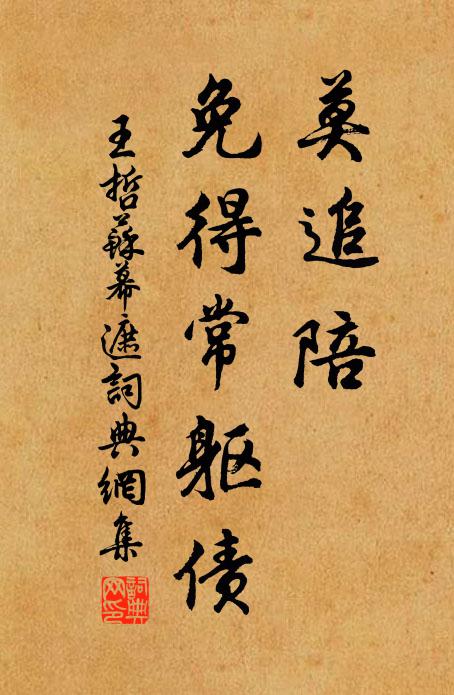 莫追陪
免得常躯债
王哲蘇幕遮詞典網集
詞典网印